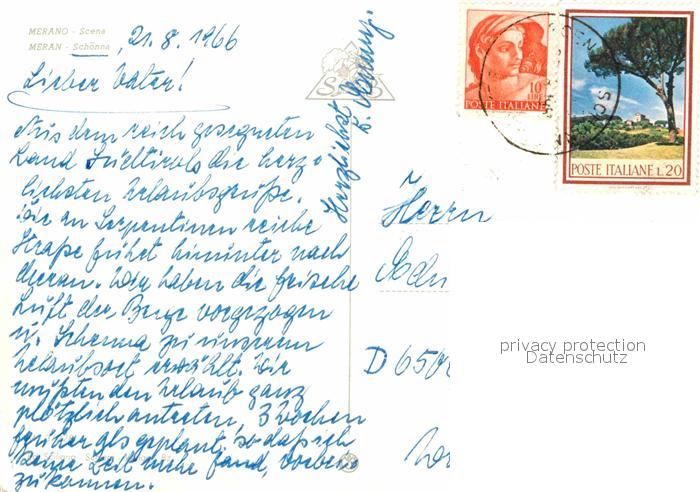 MERANO - Scena
MERAN - Schönna
, 21. 8. 1966
Lieber Vater!
Aus dem reich gesegneten
Land Südtirols die herz-
lichsten Urlaubsgrüße.
Die an Serpentinen reiche
Straße führt hinunter nach
Meran. Wir haben die frische
Luft der Berge vorgezogen
u. Schenna zu unserem
Urlaubsort erwählt. Wir
mußten den Urlaub ganz
plötzlich antreten, 3 Wochen
früher als geplant, so daß ich
keine Zeit mehr fand, vorbei
zukommen.
Herzlichst
10
LIRE
POSTE ITALIANE
POSTE ITALIANE L.20
Herrn
D 650
privacy protection
Datenschutz